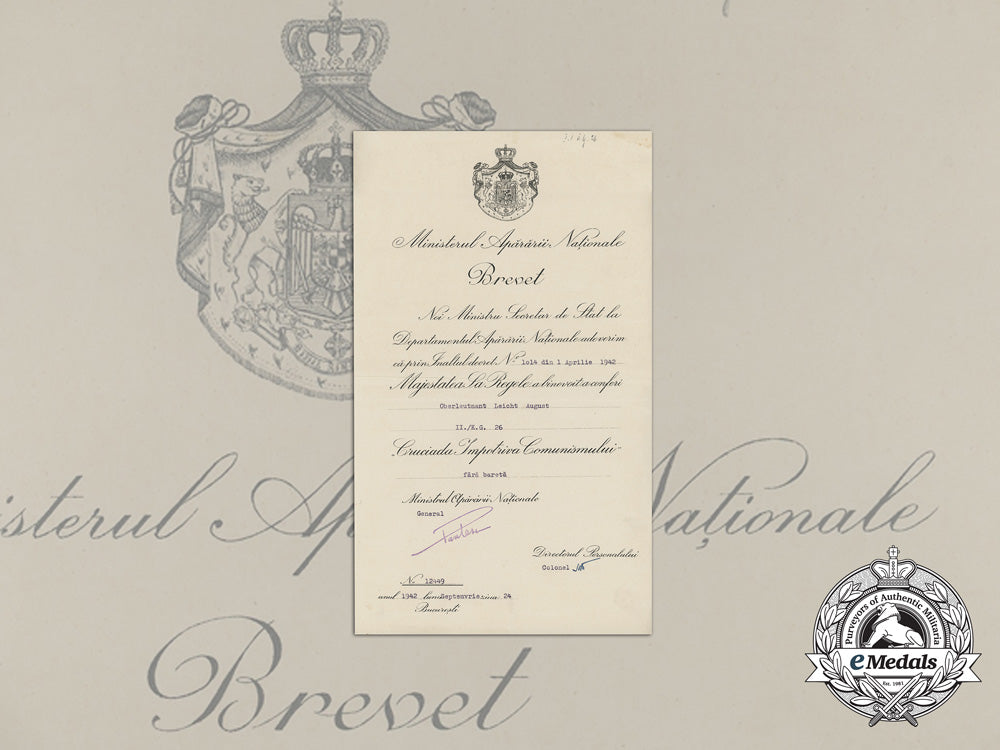 Ministerul Apărării Naționale
Brevet
Noi Ministru Secretar de Stat la
Departamentul Apărării Naționale adeverim
că prin Inaltul decret Nº 1o14 din 1 Aprilie 1942
Majestatea Sa Regele a binevoit a conferi
Oberleutnant Leicht August
II./K.G. 26
„Cruciada Impotriva Comunismului"
fără baretă
Ministrul Apărării Naționale
General
Directorul Personalului
Colonel
Nº 12449
anul 1942 luna Septemvrie ziua 24
București
isterul Ap Naționale
Brevet
Purveyors of Authentic Militaria
eMedals
Est. 1981